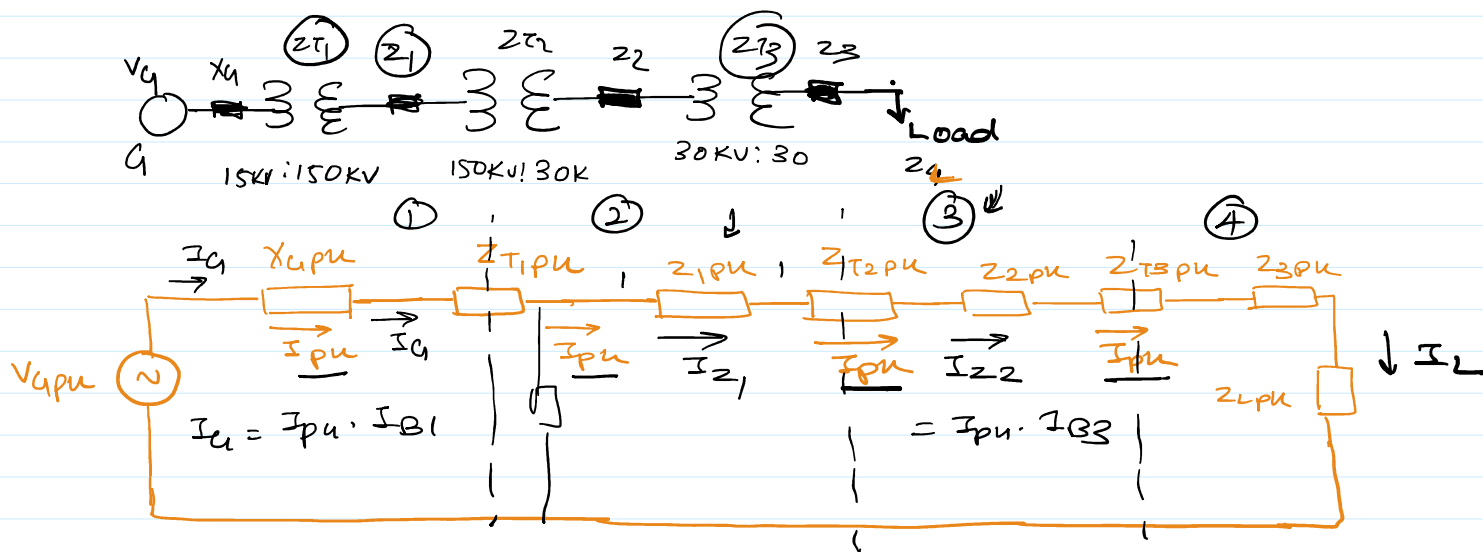 ZT1 Z1 ZT2 Z2 ZT3 Z3
VG XG
G
Load
15KV:150KV 150KV:30K 30KV:30
ZL
① ② ③ ④
IG XGpu ZT1pu Z1pu ZT2pu Z2pu ZT3pu Z3pu
Ipu IG Ipu IZ1 Ipu IZ2 Ipu IL
VGpu
ZLpu
IG = Ipu · IB1 = Ipu · IB3